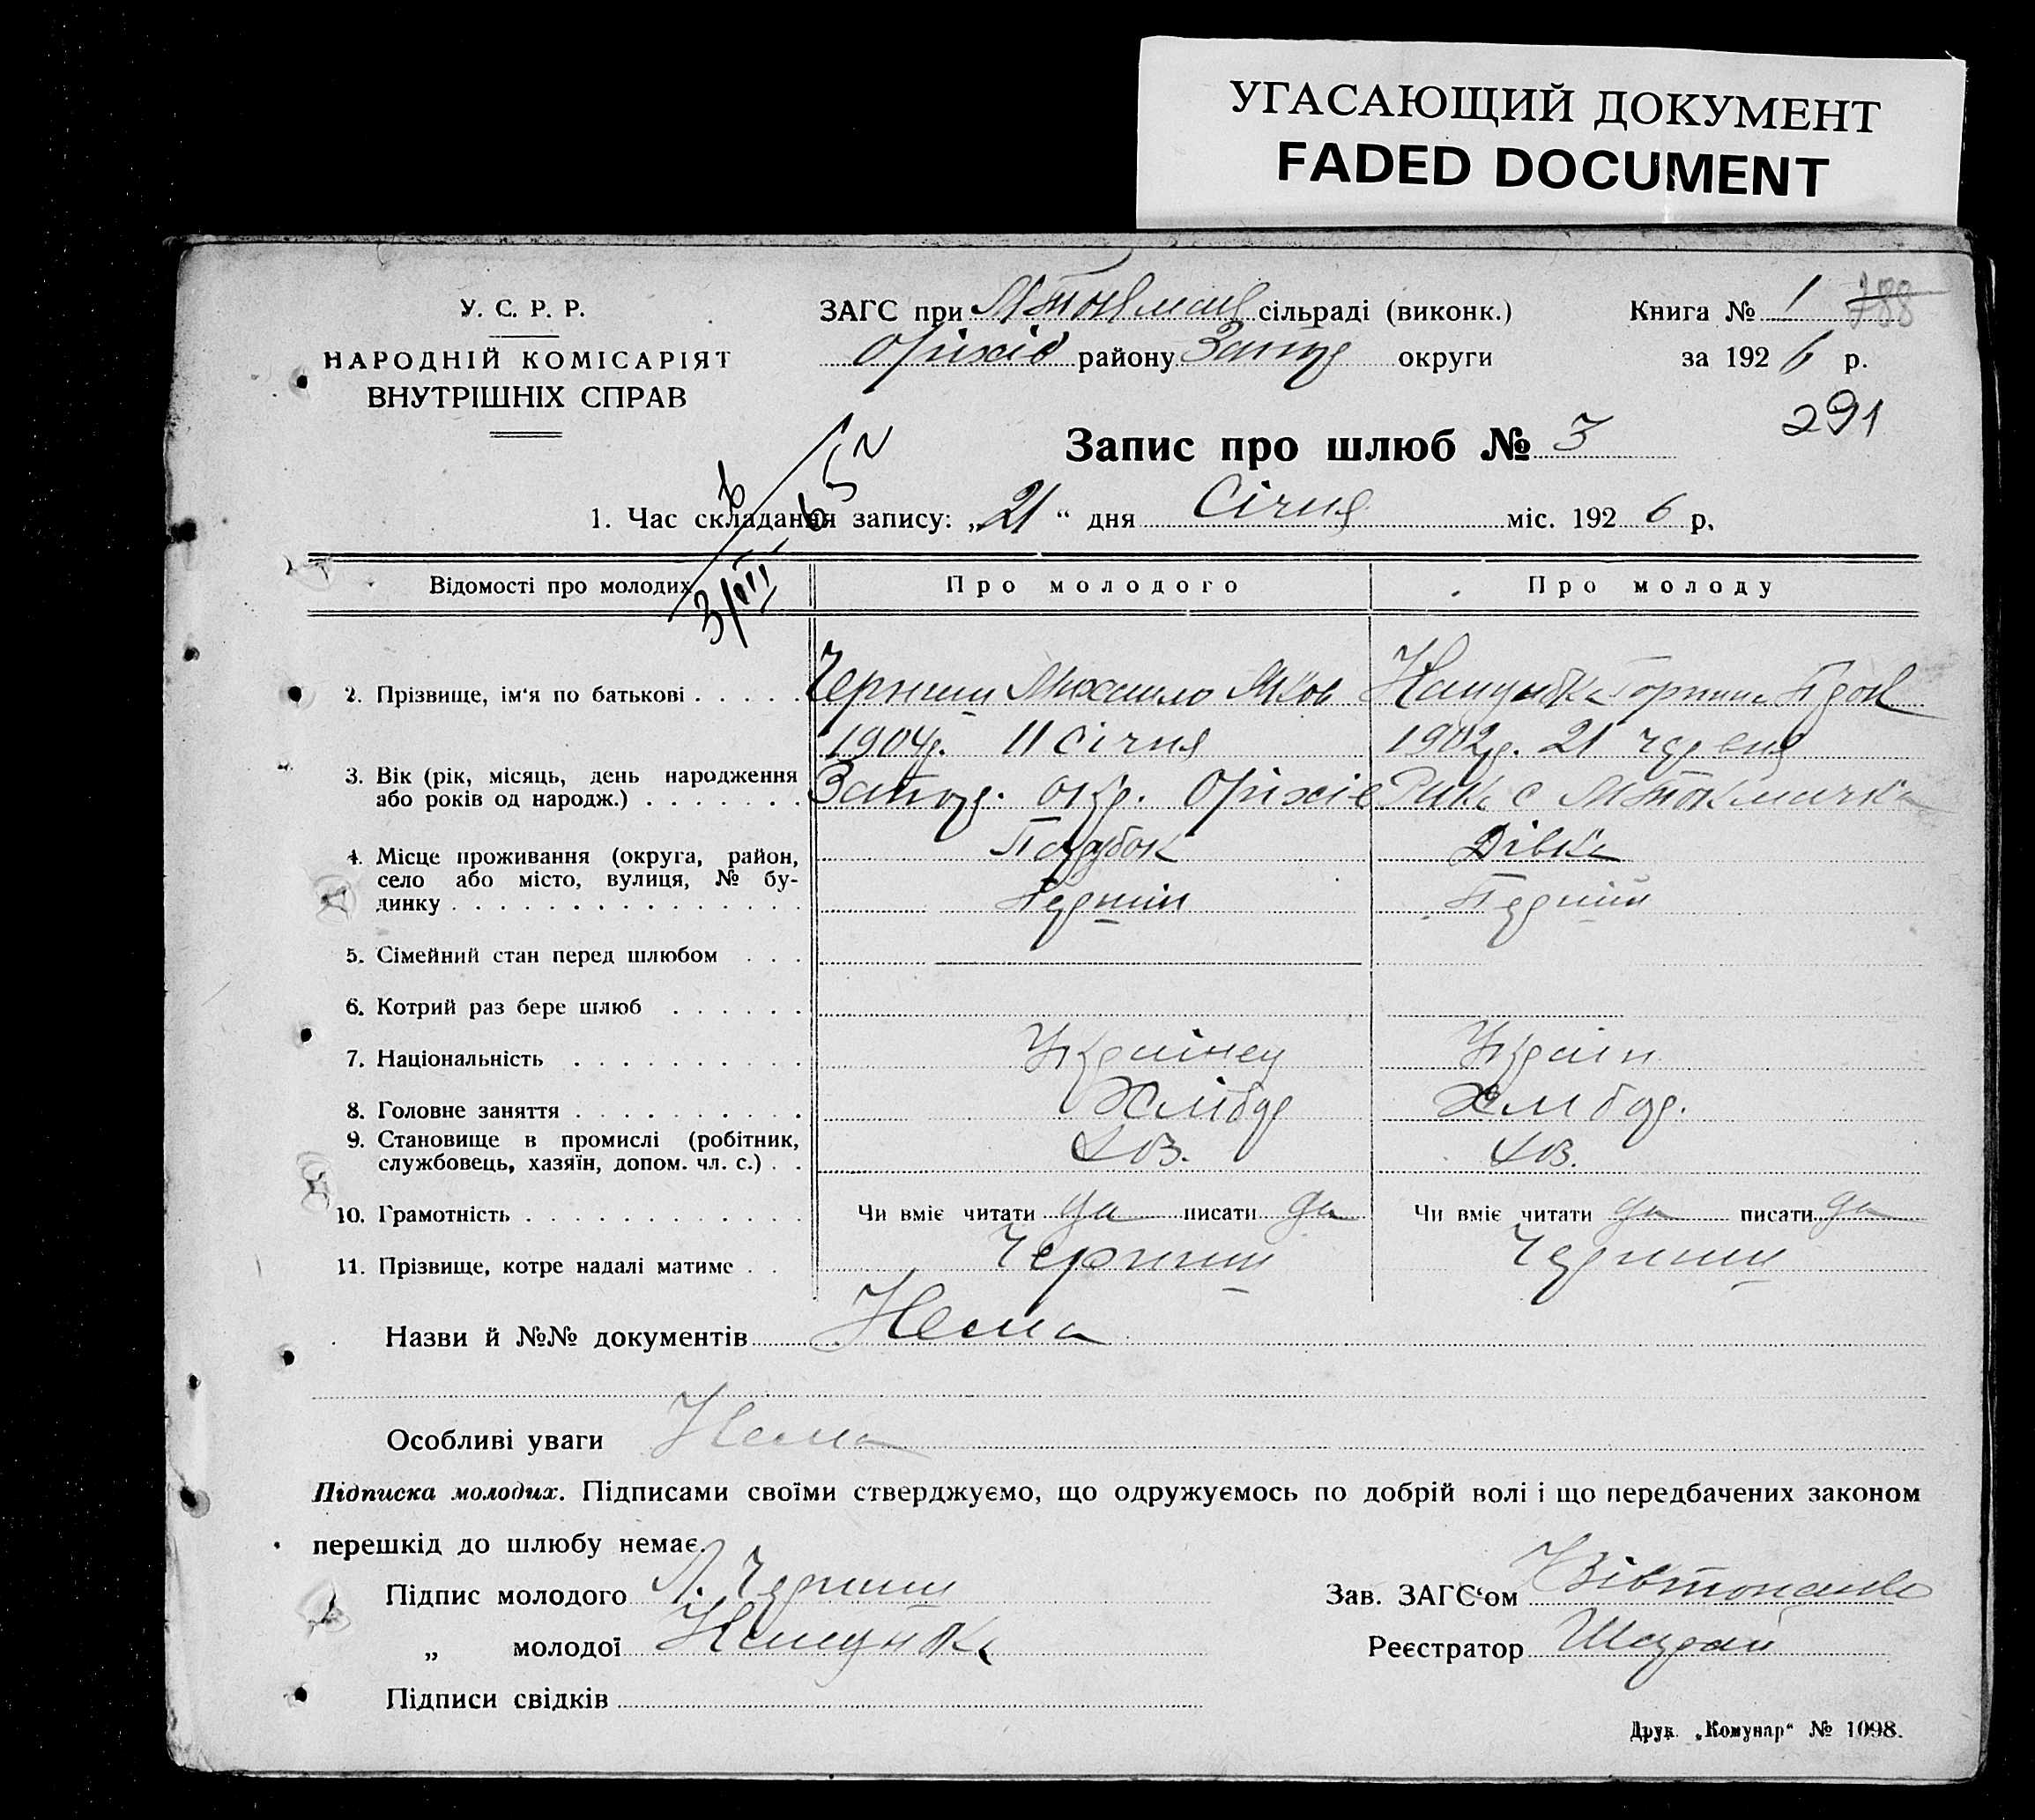 УГАСАЮЩИЙ ДОКУМЕНТ
FADED DOCUMENT
У. С. Р. Р.
НАРОДНІЙ КОМІСАРІЯТ
ВНУТРІШНІХ СПРАВ
ЗАГС при сільраді (виконк.)
Оріхів району Запор округи
Книга № 1 788
за 1926 р.
291
Запис про шлюб № 3
1. Час складання запису: „21“ дня Січня міс. 1926 р.
3/VIII
Відомості про молодих Про молодого Про молоду
2. Прізвище, ім'я по батькові . . . . . Черниш Михаило Яков
1904р. 11 січня 1902р. 21 червня
3. Вік (рік, місяць, день народження
або років од народж.) . . . . . . . Запор. окр. Оріхів с М Токмачка
4. Місце проживання (округа, район,
село або місто, вулиця, № бу-
динку . . . . . . . . . . . . . . .
Парубок Дівка
Перший Перший
5. Сімейний стан перед шлюбом . . .
6. Котрий раз бере шлюб . . . . . .
7. Національність . . . . . . . . . . Українец Україн
8. Головне заняття . . . . . . . . . . Хлібор Хлібор.
9. Становище в промислі (робітник,
службовець, хазяїн, допом. чл. с.) . .
10. Грамотність . . . . . . . . . . . . Чи вміє читати да писати да Чи вміє читати да писати да
11. Прізвище, котре надалі матиме . . Черниш Черниш
Назви й №№ документів Нема
Особливі уваги Нема
Підписка молодих. Підписами своїми стверджуємо, що одружуємось по добрій волі і що передбачених законом
перешкід до шлюбу немає.
Підпис молодого Черниш Зав. ЗАГС'ом
„ молодої Реєстратор
Підписи свідків
Друк. „Комунар“ № 1098.